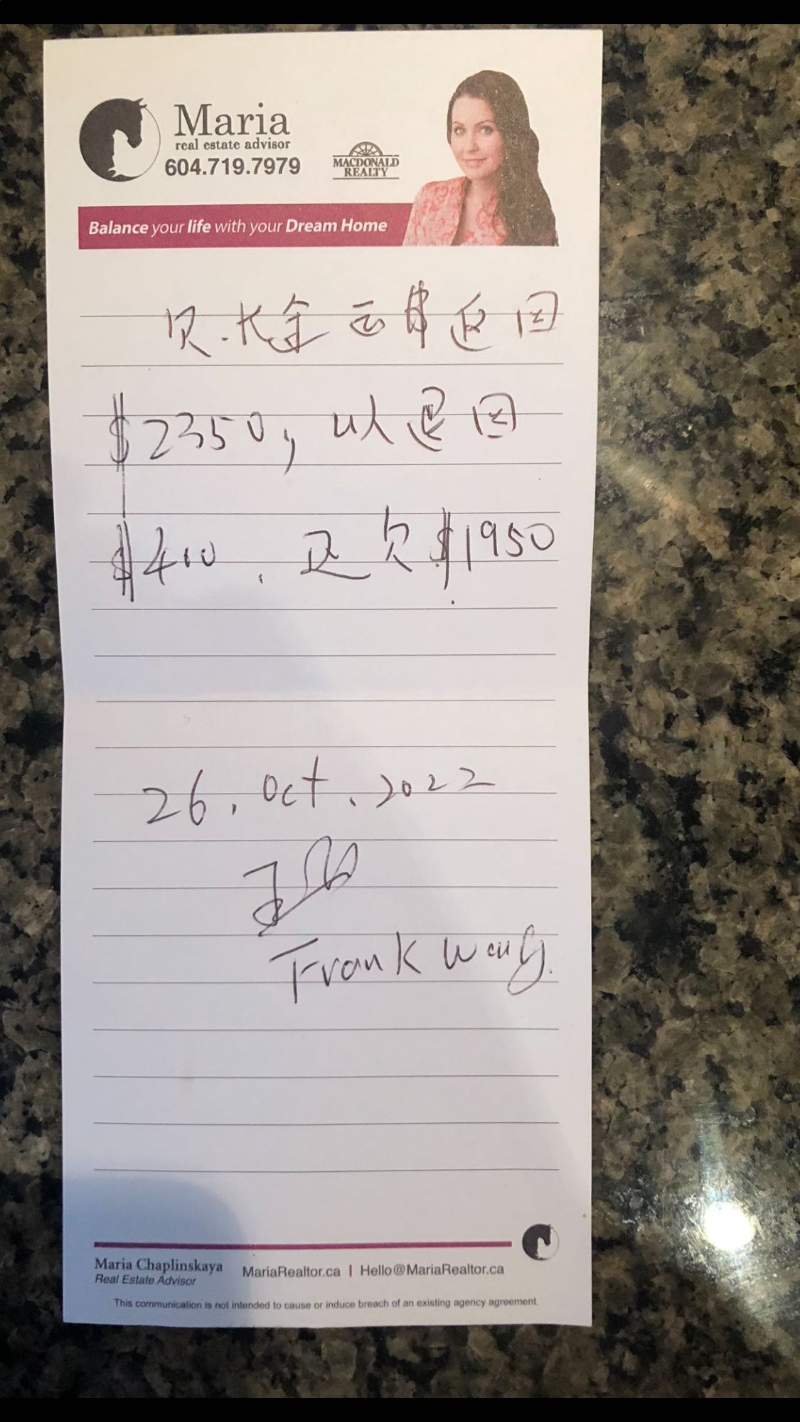 Maria
real estate advisor
604.719.7979
MACDONALD
REALTY
Balance your life with your Dream Home
退回
$2350, 以退回
$400. 还欠$1950
26. Oct. 2022
Frank Wang.
Maria Chaplinskaya
Real Estate Advisor
MariaRealtor.ca | Hello@MariaRealtor.ca
This communication is not intended to cause or induce breach of an existing agency agreement.